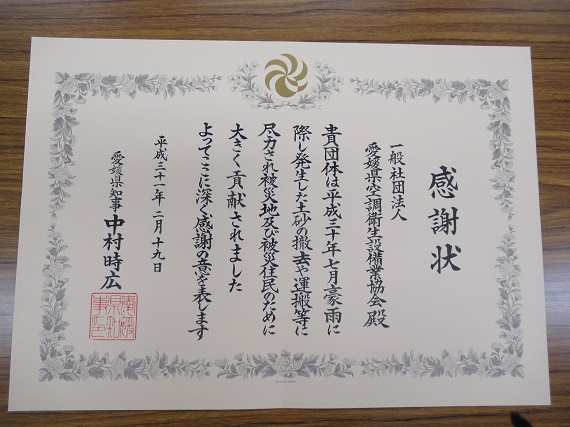 感謝状
一般社団法人
愛媛県空調衛生設備業協会 殿
貴団体は平成三十年七月豪雨に
際し発生した土砂の撤去や運搬等に
尽力され被災地及び被災住民のために
大きく貢献されました
よってここに深く感謝の意を表します
平成三十一年 二月 十九日
愛媛県知事 中村時広